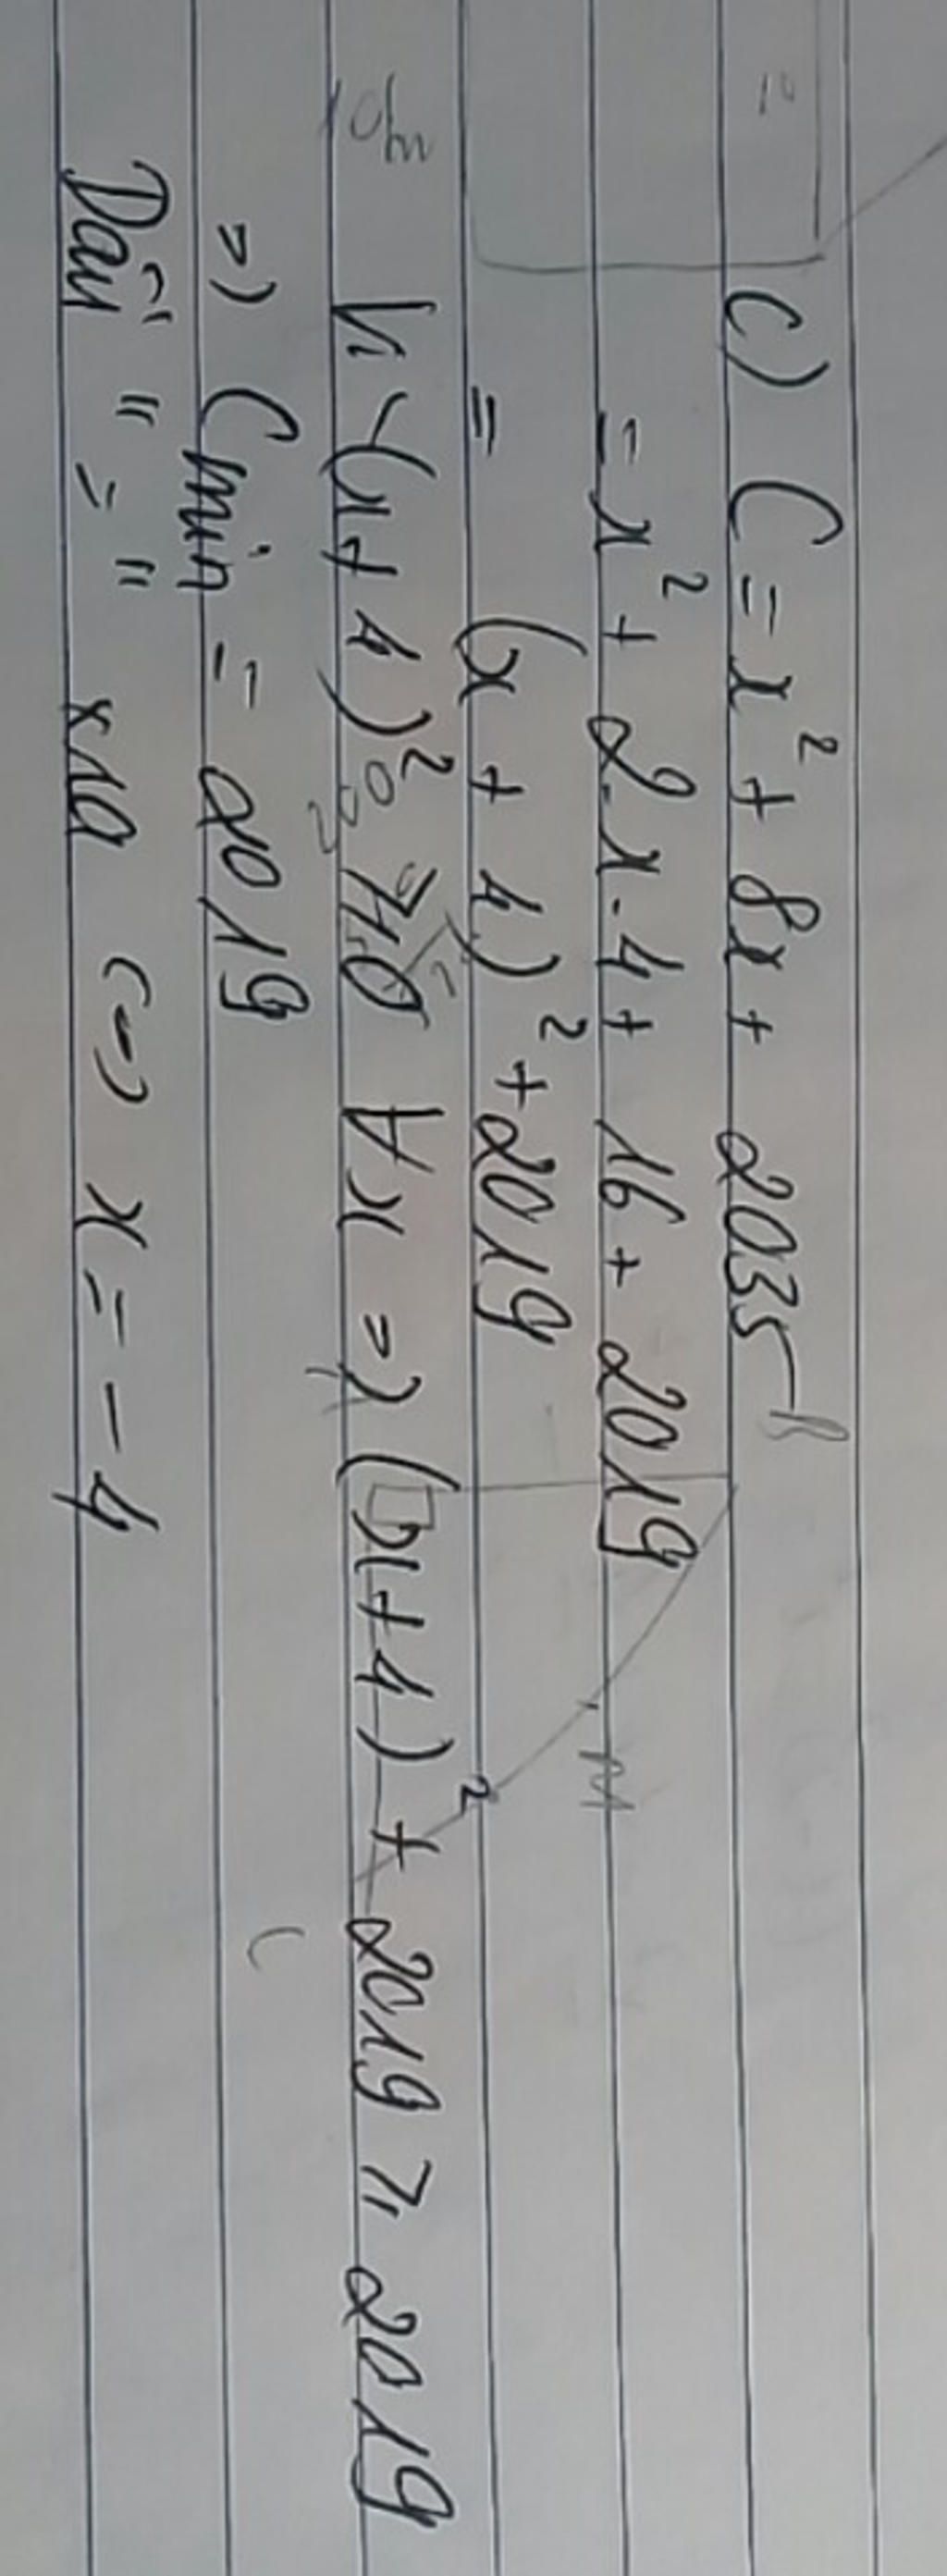 c) C = x² + 8x + 2035
= x² + 2.x.4 + 16 + 2019
= (x + 4)² + 2019
Vì (x + 4)² ≥ 0 ∀x => (x + 4)² + 2019 ≥ 2019
=> Cmin = 2019
Dấu "=" xra <=> x = -4